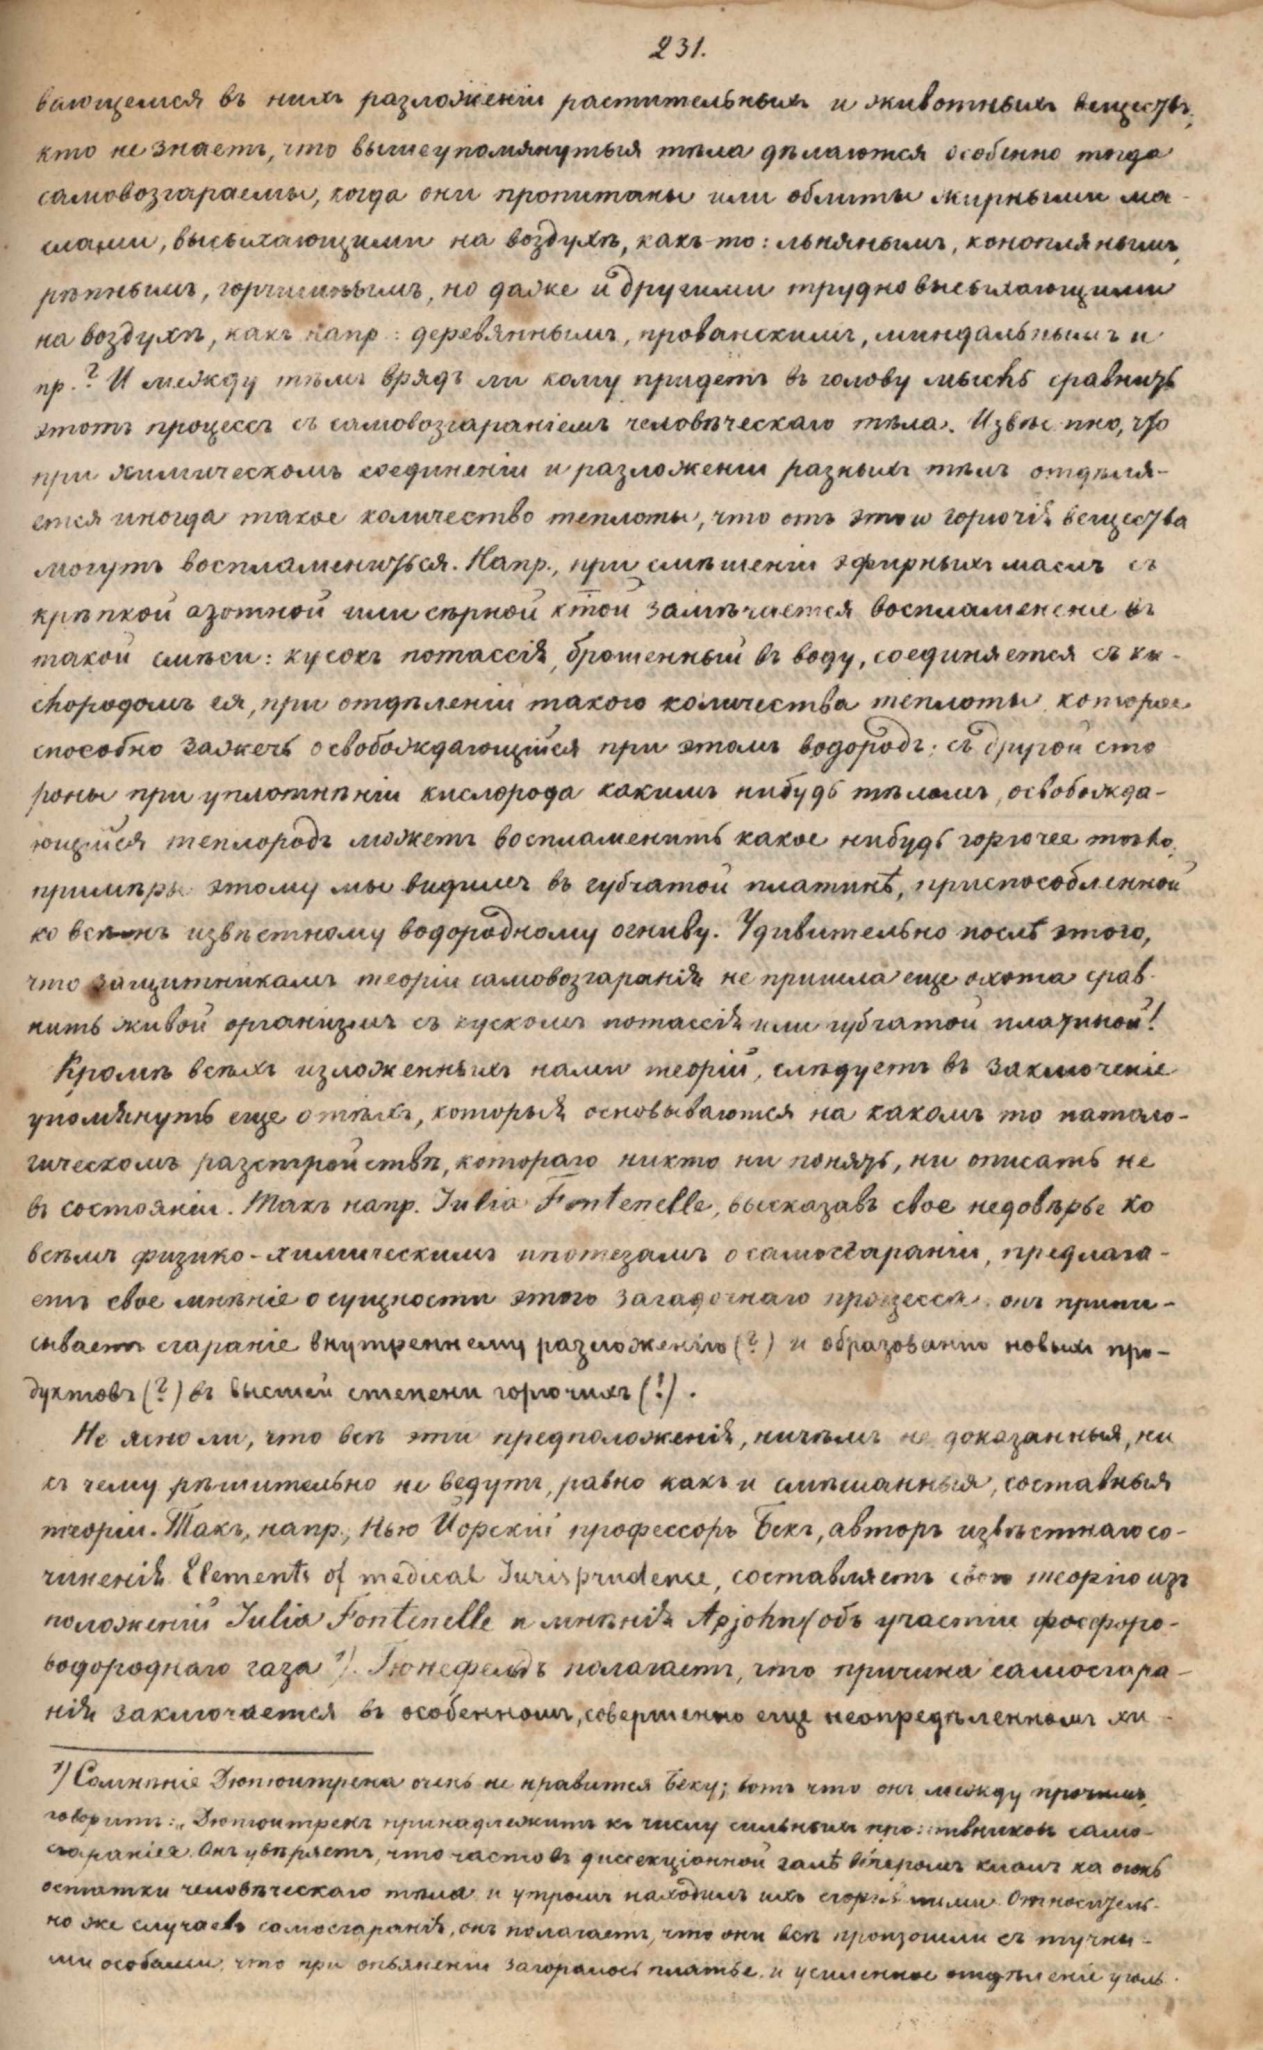 231.
вающемся въ нихъ разложеніи растительныхъ и животныхъ веществъ;
кто не знаетъ, что вышеупомянутыя тѣла дѣлаются особенно тогда
самовозгараемы, когда они пропитаны или облиты жирными ма-
слами, высыхающими на воздухѣ, какъ-то: льнянымъ, коноплянымъ,
рѣпнымъ, горчичнымъ, но даже и другими трудно высыхающими
на воздухѣ, какъ напр: деревяннымъ, прованскимъ, миндальнымъ и
пр.? И между тѣмъ врядъ ли кому придетъ въ голову мысль сравнить
этотъ процессъ съ самовозгараніемъ человѣческаго тѣла. Извѣстно, что
при химическомъ соединеніи и разложеніи разныхъ тѣлъ отдѣля-
ется иногда такое количество теплоты, что отъ этого горючія вещества
могутъ воспламениться. Напр., при смѣшеніи эфирныхъ маслъ съ
крѣпкой азотной или сѣрной ктой замѣчается воспламененіе въ
такой смѣси: кусокъ потассія, брошенный въ воду, соединяется съ ки-
слородомъ ея, при отдѣленіи такого количества теплоты, которое
способно зажечь освобождающійся при этомъ водородъ; съ другой сто
роны при уплотнѣніи кислорода какимъ нибудь тѣломъ, освобожда-
ющійся теплородъ можетъ воспламенить какое нибудь горючее тѣло;
примѣры этому мы видимъ въ губчатой платинѣ, приспособленной
ко всѣмъ извѣстному водородному огниву. Удивительно послѣ этого,
что защитникамъ теоріи самовозгаранія не пришла еще охота срав-
нить живой организмъ съ кускомъ потассія или губчатой платиной!
Кромѣ всѣхъ изложенныхъ нами теорій, слѣдуетъ въ заключеніе
упомянуть еще о тѣхъ, которыя основываются на какомъ то патоло-
гическомъ разстройствѣ, котораго никто ни понять, ни описать не
въ состояніи. Такъ напр. Iulia Fontenelle, высказавъ свое недовѣрье ко
всѣмъ физико-химическимъ ипотезамъ о самосгараніи, предлага-
етъ свое мнѣніе о сущности этого загадочнаго процесса: онъ припи-
сываетъ сгараніе внутреннему разложенію (?) и образованію новыхъ про-
дуктовъ (?) въ высшей степени горючихъ (!).
Не ясно ли, что всѣ эти предположенія, ничѣмъ не доказанныя, ни
къ чему рѣшительно не ведутъ, равно какъ и смѣшанныя, составныя
теоріи. Такъ, напр., Нью Йорскій профессоръ Бекъ, авторъ извѣстнаго со-
чиненія Elements of medical Iurisprudence, составляетъ свою теорію изъ
положеній Iulia Fontenelle и мнѣнія Apjohn (объ участіи фосфоро-
водороднаго газа ¹). Гюнефельдъ полагаетъ, что причина самосгара-
нія заключается въ особенномъ, совершенно еще неопредѣленномъ хи-
¹) Сомнѣніе Дюпюитрена очень не нравится Беку; вотъ что онъ между прочимъ
говоритъ: „Дюпюитренъ принадлежитъ къ числу сильныхъ противниковъ само-
сгаранія. Онъ увѣряетъ, что часто въ диссекціонной залѣ вечеромъ клалъ на огонь
остатки человѣческаго тѣла и утромъ находилъ ихъ сгорѣвшими. Относитель-
но же случаевъ самосгаранія, онъ полагаетъ, что они всѣ произошли съ тучны-
ми особами, что при опьяненіи загоралось платье, и усиленное отдѣленіе уголь-